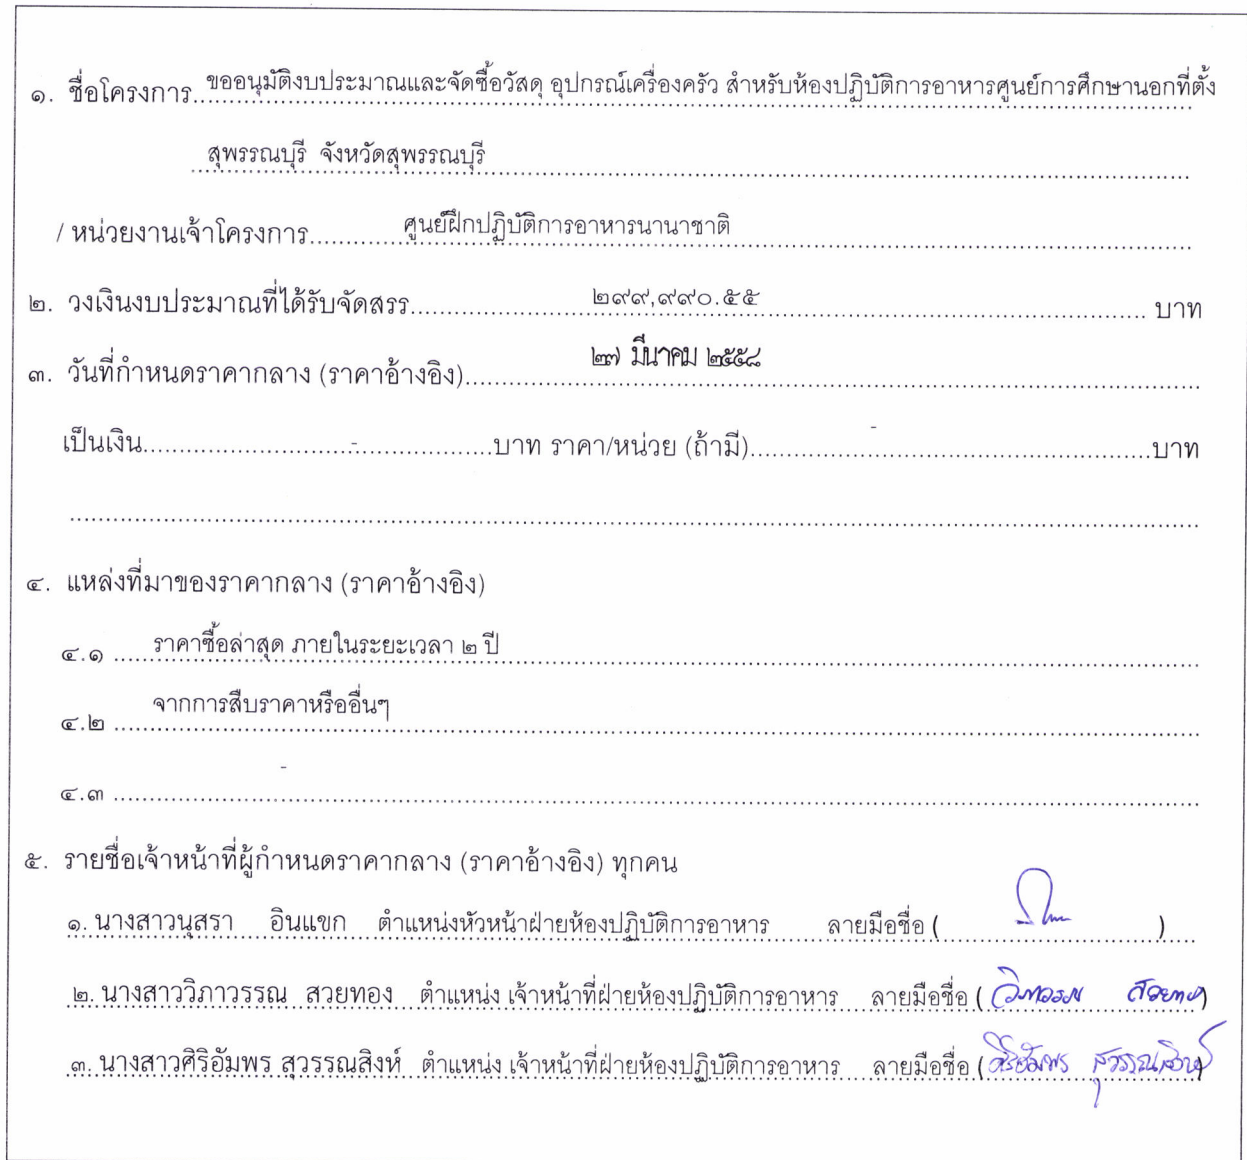 ๑. ชื่อโครงการ ขออนุมัติงบประมาณและจัดซื้อวัสดุ อุปกรณ์เครื่องครัว สำหรับห้องปฏิบัติการอาหารศูนย์การศึกษานอกที่ตั้ง
สุพรรณบุรี จังหวัดสุพรรณบุรี
/ หน่วยงานเจ้าโครงการ ศูนย์ฝึกปฏิบัติการอาหารนานาชาติ
๒. วงเงินงบประมาณที่ได้รับจัดสรร ๒๙๙,๙๙๐.๕๕ บาท
๓. วันที่กำหนดราคากลาง (ราคาอ้างอิง) ๒๗ มีนาคม ๒๕๕๘
เป็นเงิน - บาท ราคา/หน่วย (ถ้ามี) - บาท
๔. แหล่งที่มาของราคากลาง (ราคาอ้างอิง)
๔.๑ ราคาซื้อล่าสุด ภายในระยะเวลา ๒ ปี
๔.๒ จากการสืบราคาหรืออื่นๆ
๔.๓ -
๕. รายชื่อเจ้าหน้าที่ผู้กำหนดราคากลาง (ราคาอ้างอิง) ทุกคน
๑. นางสาวนุสรา อินแขก ตำแหน่งหัวหน้าฝ่ายห้องปฏิบัติการอาหาร ลายมือชื่อ ( )
๒. นางสาววิภาวรรณ สวยทอง ตำแหน่ง เจ้าหน้าที่ฝ่ายห้องปฏิบัติการอาหาร ลายมือชื่อ (วิภาวรรณ สวยทอง)
๓. นางสาวศิริอัมพร สุวรรณสิงห์ ตำแหน่ง เจ้าหน้าที่ฝ่ายห้องปฏิบัติการอาหาร ลายมือชื่อ (ศิริอัมพร สุวรรณสิงห์)